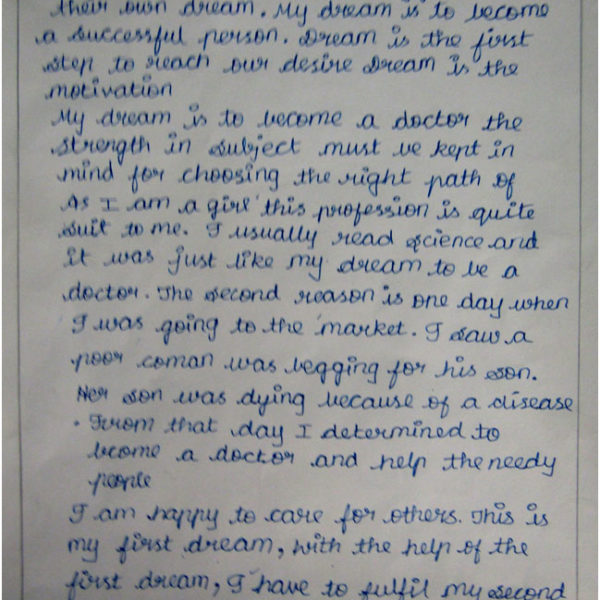 their own dream. My dream is to become
a successful person. Dream is the first
step to reach our desire Dream is the
motivation
My dream is to become a doctor the
strength in subject must be kept in
mind for choosing the right path of
As I am a girl this profession is quite
suit to me. I usually read science and
it was just like my dream to be a
doctor. The second reason is one day when
I was going to the market. I saw a
poor coman was begging for his son.
Her son was dying because of a disease
. From that day I determined to
become a doctor and help the needy
people
I am happy to care for others. This is
my first dream, with the help of the
first dream, I have to fulfil my second